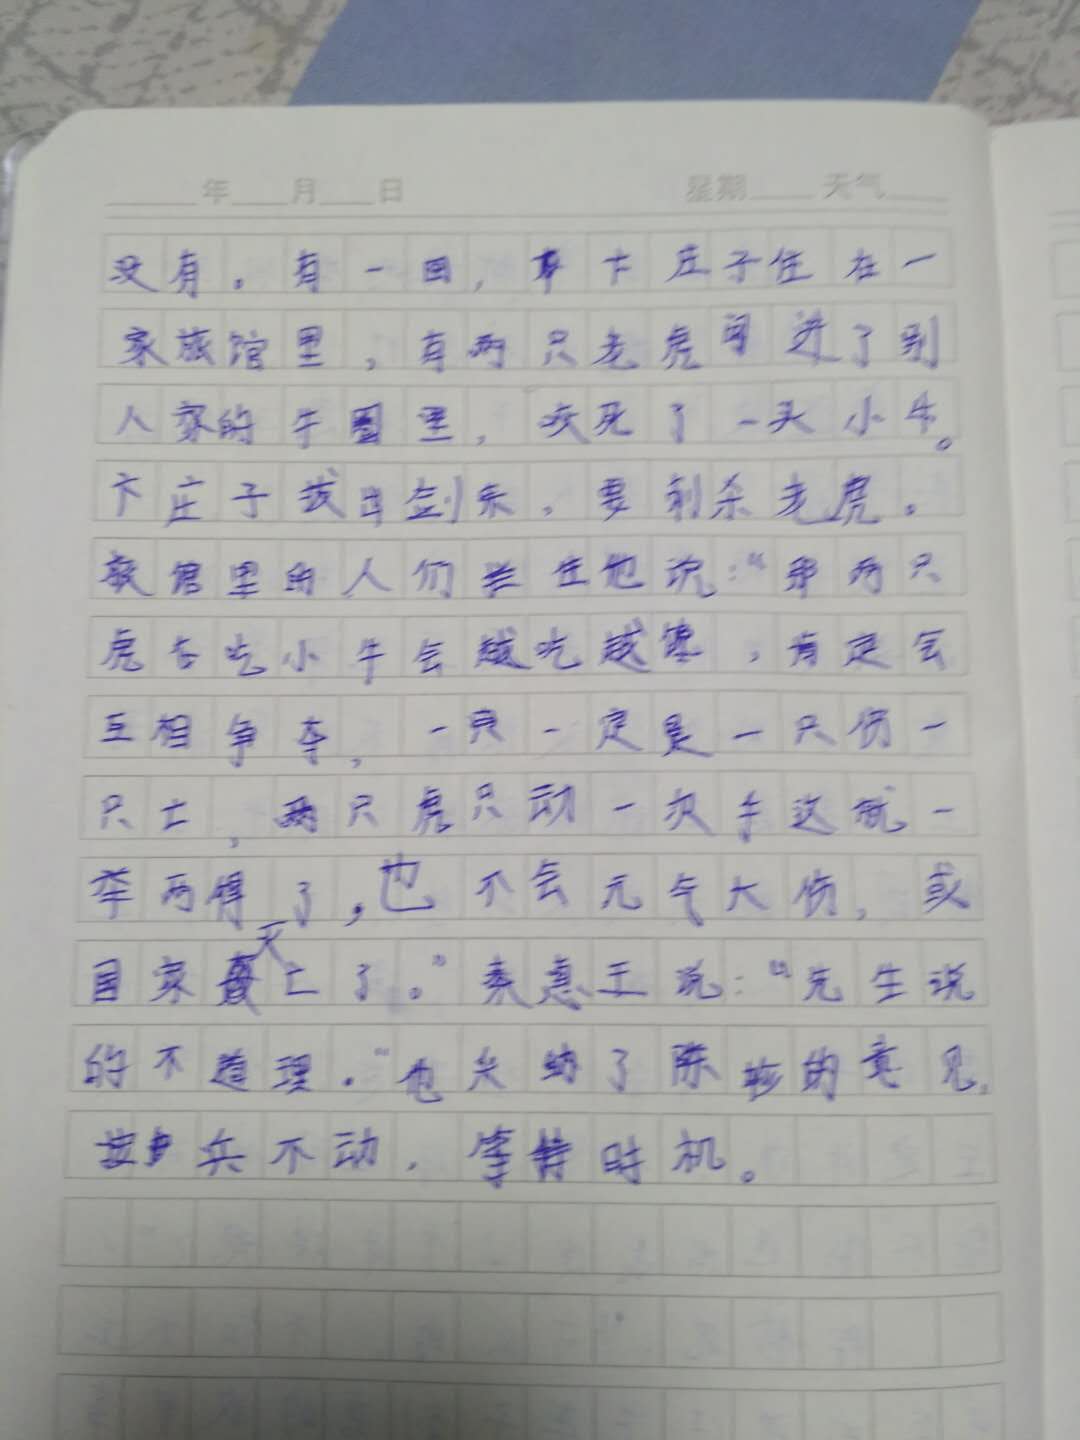 年 月 日 星期 天气
没有。有一回，卞庄子住在一
家旅馆里，有两只老虎闯进了别
人家的牛圈里，咬死了一头小牛。
卞庄子拔出剑来，要刺杀老虎。
旅馆里的人们拦住他说：“那两只
虎吃小牛会越吃越，肯定会
互相争夺，一定是一只伤一
只亡，两只虎只动一次手这就一
举两得了，也不会元气大伤，或
国家灭亡了。”秦惠王说：“先生说
的不道理。”他采纳了陈轸的意见，
按兵不动，等待时机。